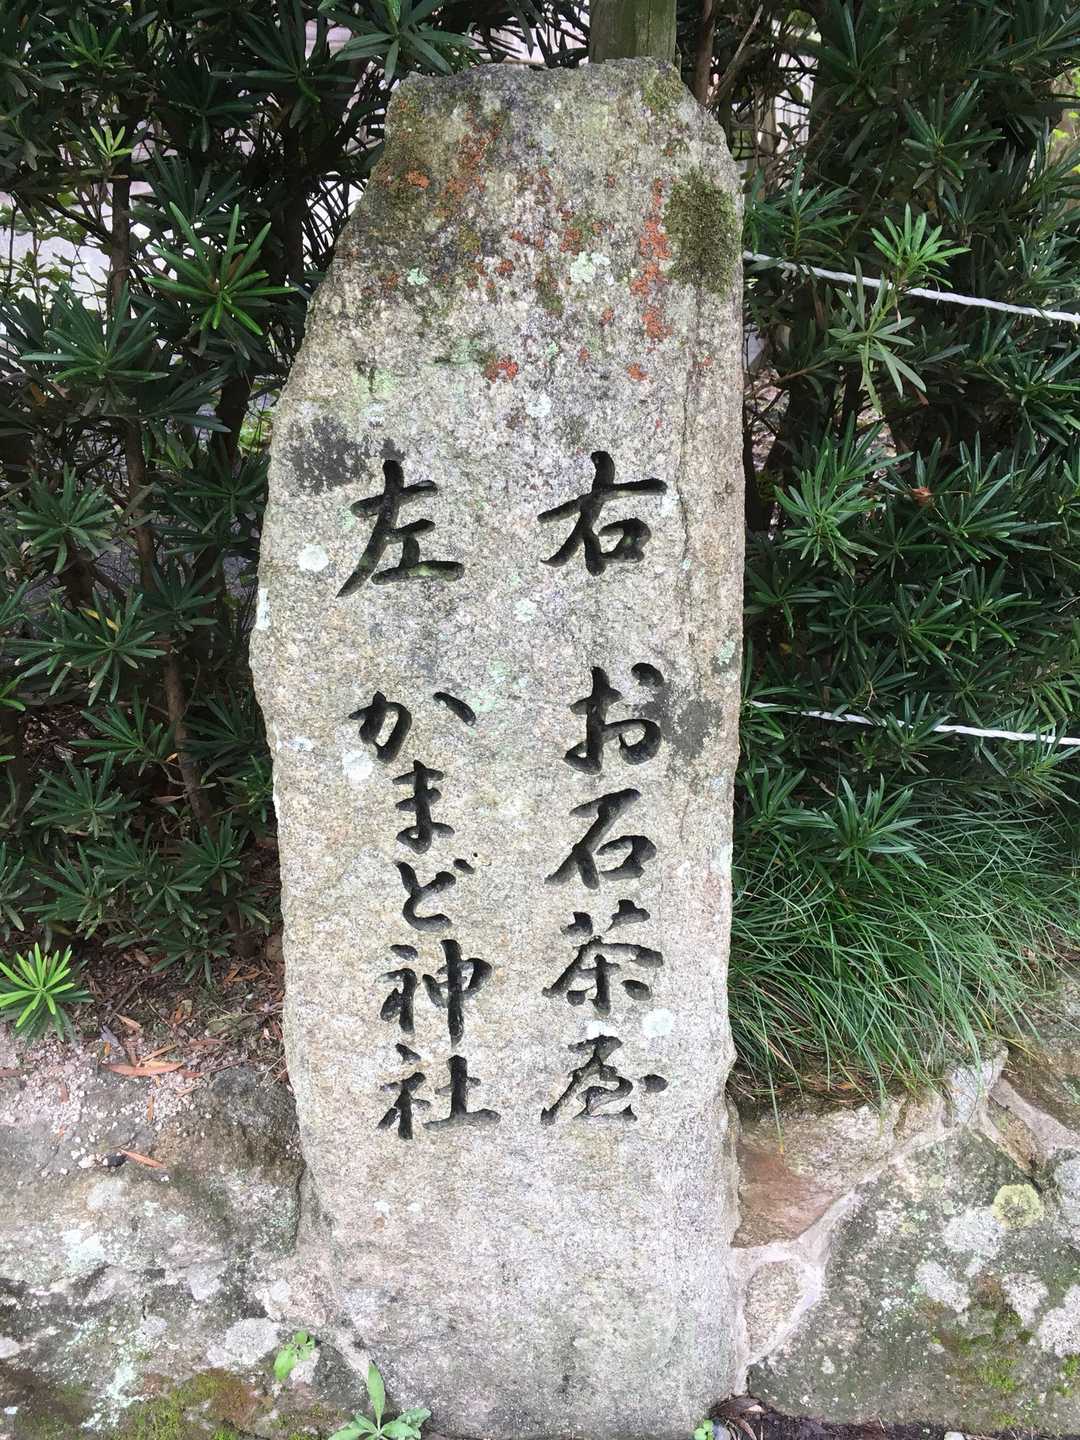 右 お石茶屋
左 かまど神社